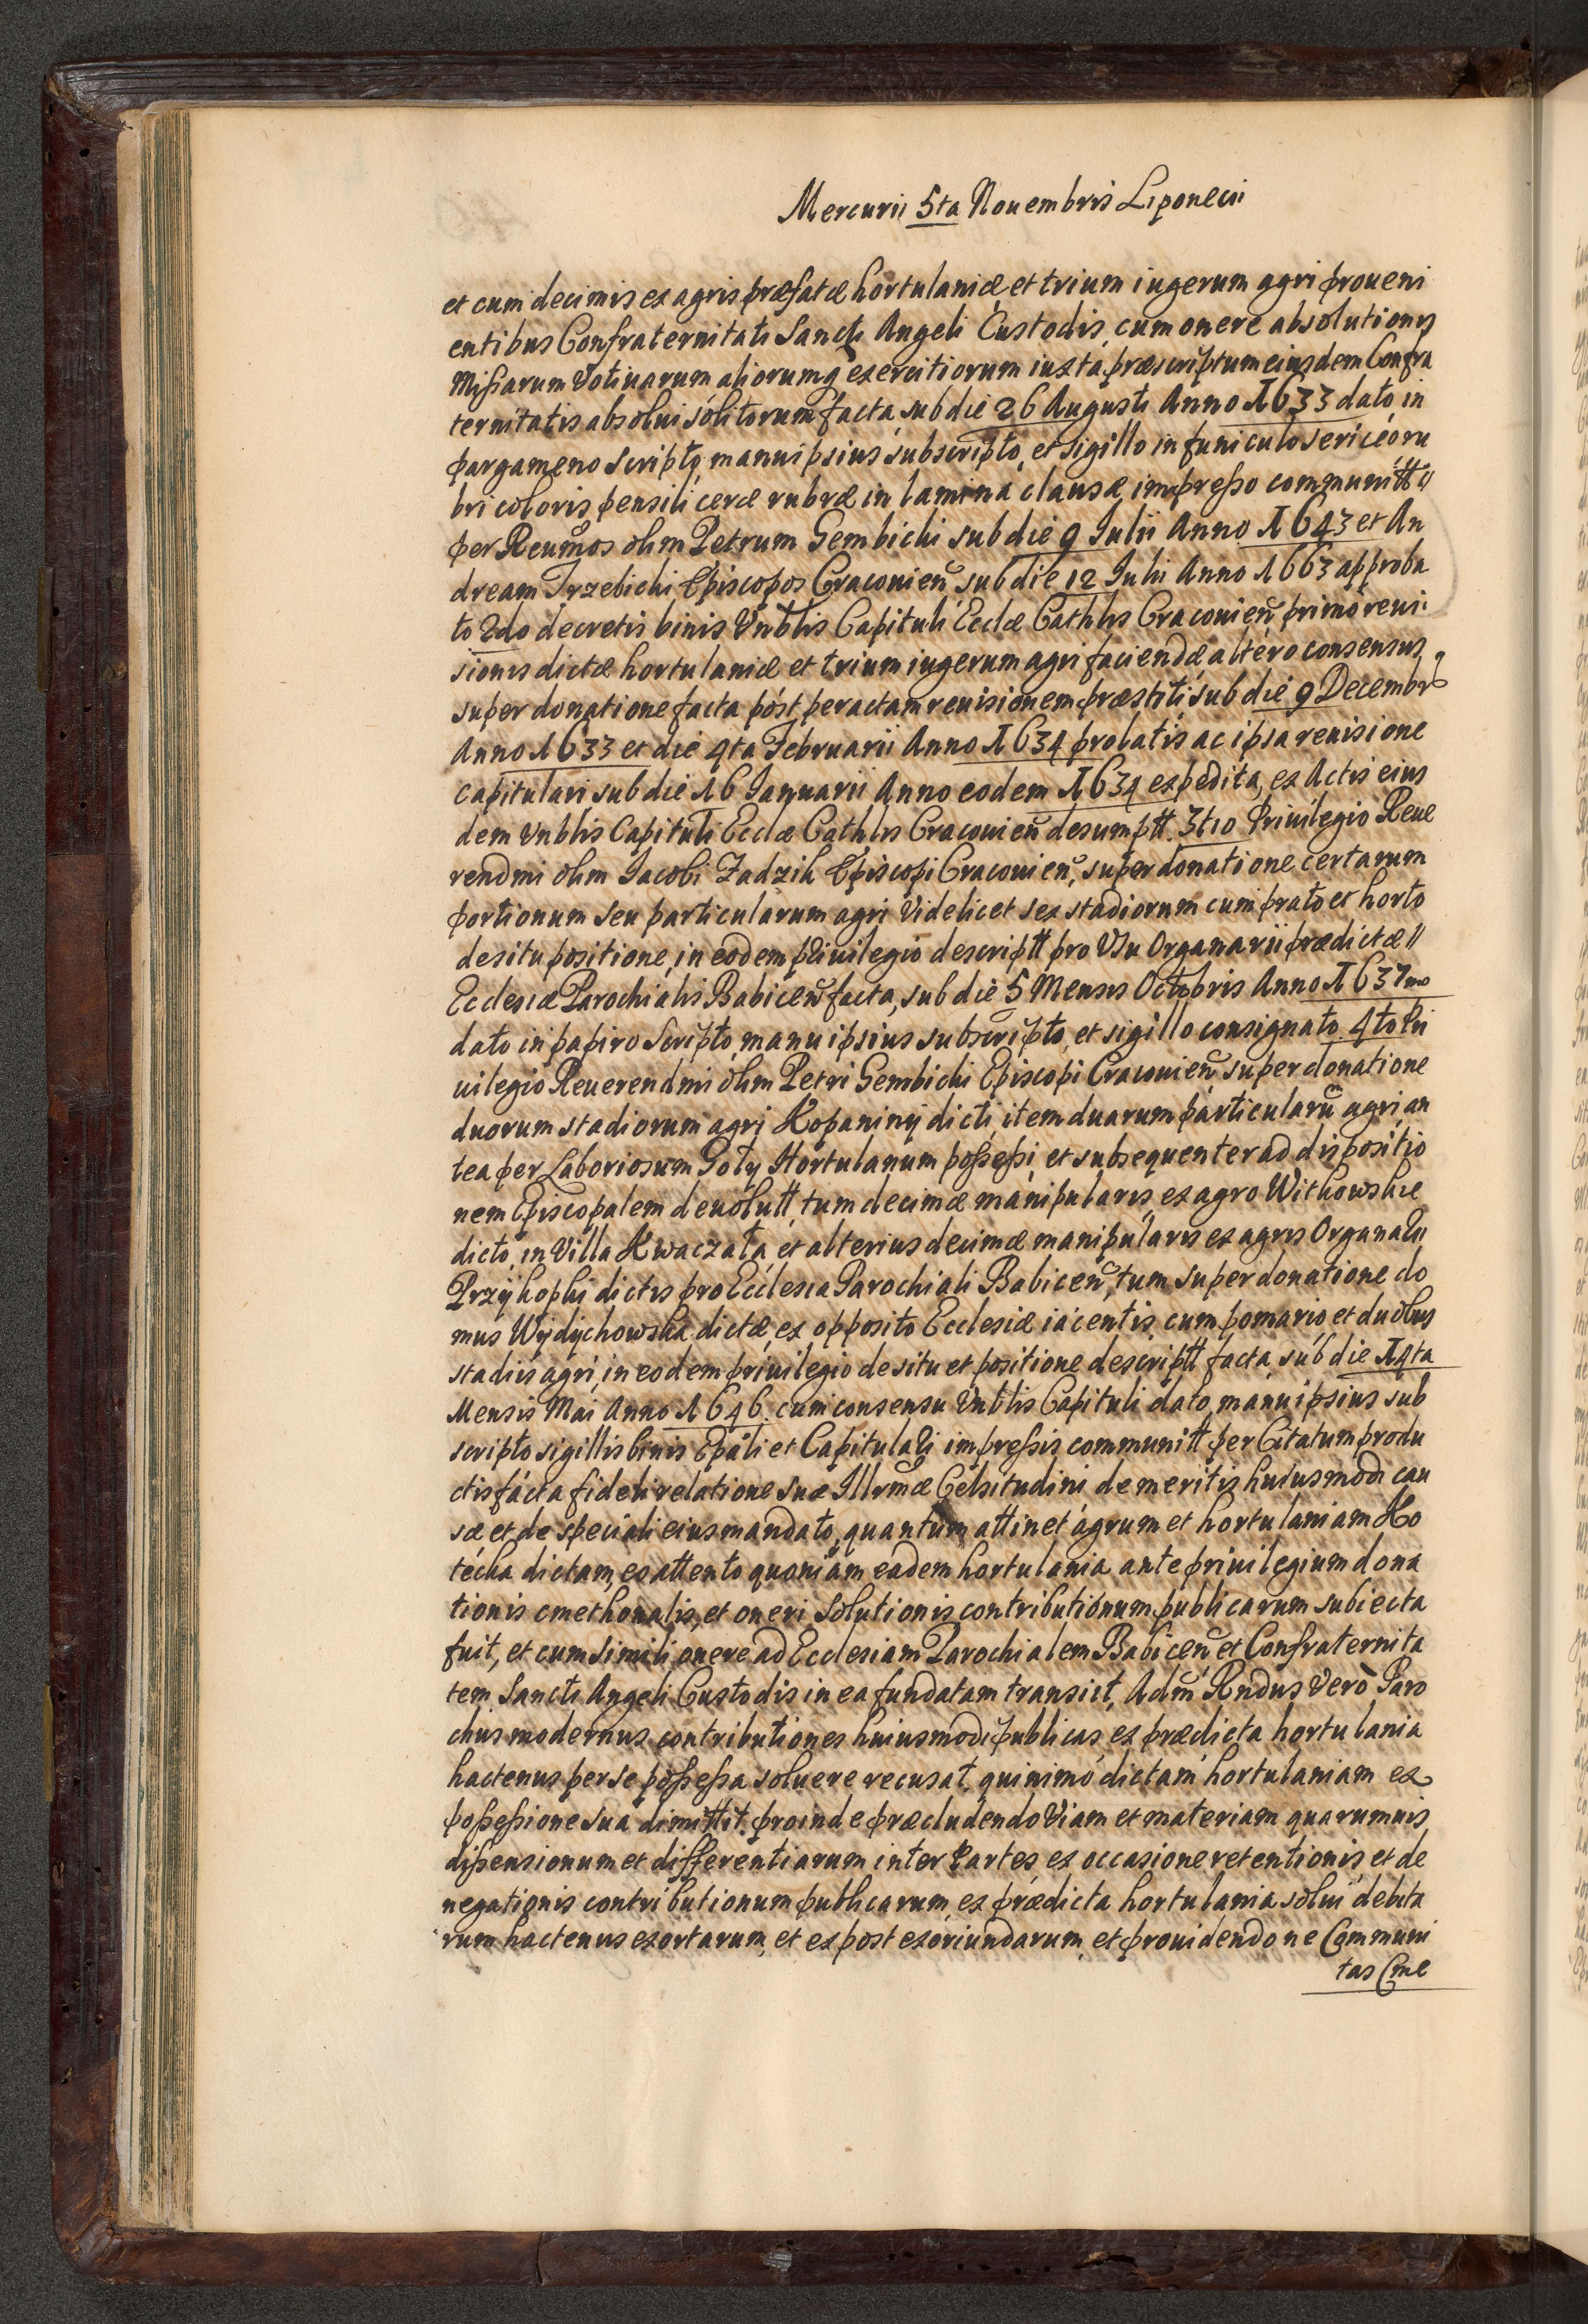 Mercurii 5ta Nouembris Liponecii
et cum decimis ex agris præfatæ hortulaniæ et trium iugerum agri proueni
entibus Confraternitati Sancti Angeli Custodis, cum onere absolutionis
Missarum Votiuarum aliorumq exercitiorum iuxta præscriptum eiusdem Confra
ternitatis absolui solitorum facta, sub die 26 Augusti Anno 1633 dato, in
pargameno scripto, manu ipsius subscripto, et sigillo in funiculo sericeo, ru
bri coloris pensili ceræ rubræ in lamina clausæ impresso communitt a
per Reumos olim Petrum Gembichi sub die 9 Iulii Anno 1643 et An
dream Trzebichi Episcopos Cracouien sub die 12 Iulii Anno 1663 approba
to 2do decretis binis Vnblis Capituli Ecclæ Cathlis Cracouien primo reui
sionis dictæ hortulaniæ et trium iugerum agri faciendæ altero consensus
super donatione facta post peractam reuisionem præstiti, sub die 9 Decembr
Anno 1633 et die 4ta Februarii Anno 1634 prolatis ac ipsa reuisione
capitulari sub die 16 Ianuarii Anno eodem 1634 expedita, ex Actis eius
dem Vnblis Capituli Ecclæ Cathlis Cracouien desumptt. 3tio Priuilegio Reue
rendmi olim Iacobi Zadzik Episcopi Cracouien, super donatione certarum
portionum seu particularum agri Videlicet sex stadiorum cum prato et horto
de situ positione, in eodem priuilegio descriptt pro Vsu Organarii prædictæ
Ecclesiæ Parochialis Babicen facta, sub die 5 Mensis Octobris Anno 1637mo
dato in papiro scripto, manu ipsius subscripto, et sigillo consignato. 4to Pri
uilegio Reuerendmi olim Petri Gembichi Episcopi Cracouien super donatione
duorum stadiorum agri Kopaniny dicti, item duarum particularu agri, an
tea per Laboriosum Goły Hortulanum possessi, et subsequenter ad dispositio
nem Episcopalem deuolutt, tum decimæ manipularis, ex agro Witkowskie
dicto, in Villa Kwaczała, et alterius decimæ manipularis ex agris Organali
Przykopki dictis pro Ecclesia Parochiali Babicen, tum super donatione do
mus Wydychowska dictæ, ex opposito Ecclesiæ iacentis, cum pomario et duobus
stadiis agri, in eodem priuilegio de situ et positione descriptt facta, sub die 14ta
Mensis Mai Anno 1646. cum consensu Vnblis Capituli dato, manu ipsius sub
scripto sigillis binis Epali et Capitulari impressis communitt per Citatum produ
ctis facta fideli relatione suæ Illrmæ Celsitudini de meritis huiusmodi cau
sæ et de speciali eius mandato, quantum attinet agrum et hortulaniam Ko
tecka dictam, ex attento quoniam eadem hortulania ante priuilegium dona
tionis cmethonalis, et oneri solutionis contributionum publicarum subiecta
fuit, et cum simili onere ad Ecclesiam Parochialem Babicen et Confraternita
tem Sancti Angeli Custodis in ea fundatam transiit, Adm Rndus Vero Paro
chus modernus contributiones huiusmodi publicas, ex prædicta hortulania
hactenus per se possessa soluere recusat, quinimo dictam hortulaniam ex
possessione sua dimittit. proinde præcludendo Viam et materiam quarumuis,
dissensionum et differentiarum inter Partes ex occasione retentionis et de
negationis contributionum publicarum, ex prædicta hortulania solui debita
rum hactenus exortarum, et ex post exoriundarum, et prouidendo ne Communi
tas Cme